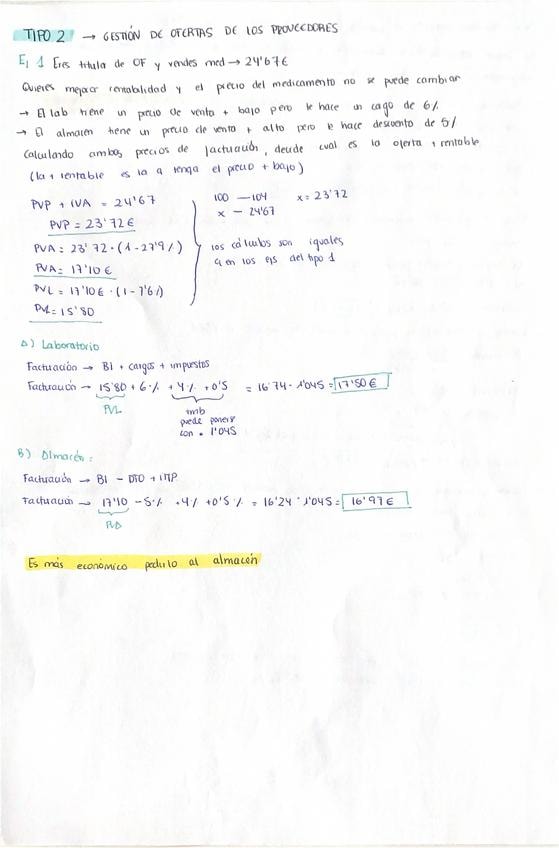 TIPO 2 → GESTIÓN DE OFERTAS DE LOS PROVEEDORES
Ej 1 Eres titula de OF y vendes med → 24'67€
Quieres mejorar rentabilidad y el precio del medicamento no se puede cambiar
→ El lab tiene un precio de venta + bajo pero le hace un cargo de 6%
→ El almacén tiene un precio de venta + alto pero le hace descuento de 5%
Calculando ambos precios de facturación, decide cual es la oferta + rentable
(la + rentable es la q tenga el precio + bajo)
PVP + IVA = 24'67
PVP = 23'72€
PVA = 23'72·(1-27'9%)
PVA = 17'10€
PVL = 17'10€·(1-7'6%)
PVL = 15'80
100 — 104 x = 23'72
x — 24'67
los cálculos son iguales
q en los ejs del tipo 1
A) Laboratorio
Facturación → BI + cargos + impuestos
Facturación → 15'80 + 6% + 4% + 0'5 = 16'74 · 1'045 = 17'50€
PVL
tmb
puede ponerse
con · 1'045
B) Almacén:
Facturación → BI - DTO + IMP
Facturación → 17'10 - 5% + 4% + 0'5% = 16'24 · 1'045 = 16'97€
PVA
Es más económico pedirlo al almacén